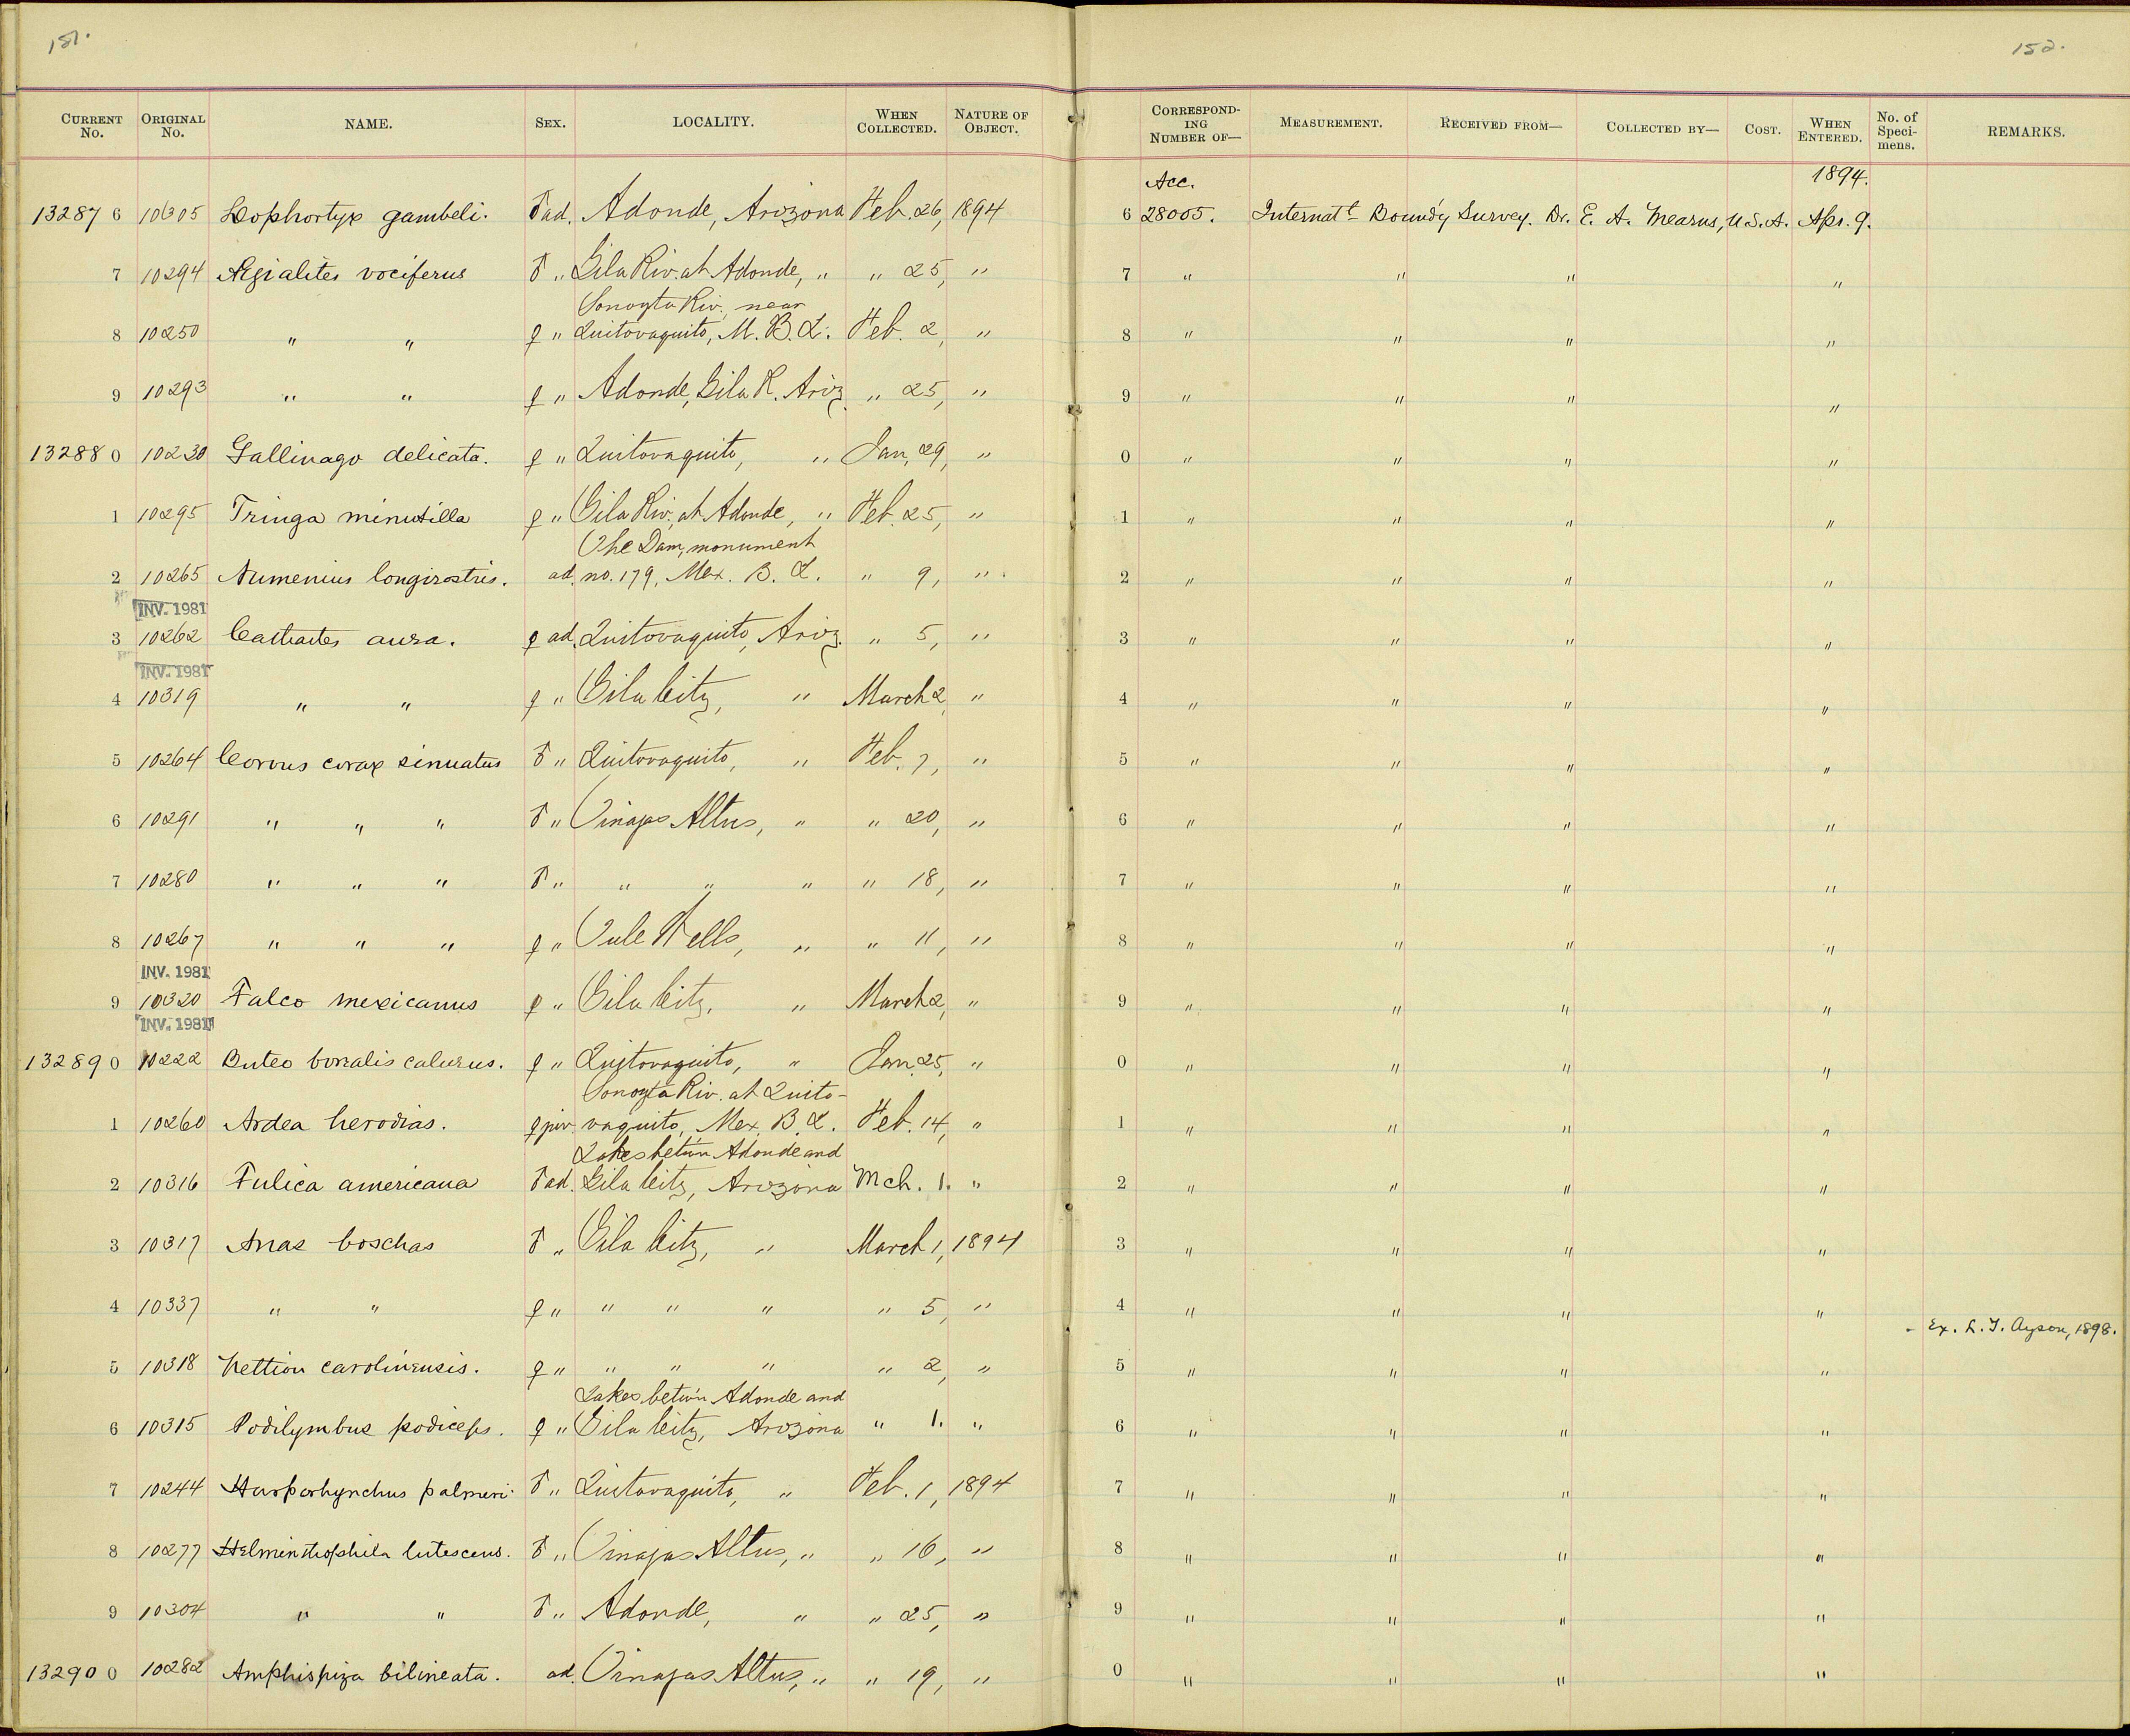 151.
152.
CURRENT No. ORIGINAL No. NAME. SEX. LOCALITY. WHEN COLLECTED. NATURE OF OBJECT. CORRESPONDING NUMBER OF— MEASUREMENT. RECEIVED FROM— COLLECTED BY— COST. WHEN ENTERED. No. of Specimens. REMARKS.
Acc. 1894.
13287 6 10305 Lophortyx gambeli. ♂ ad. Adonde, Arizona Feb. 26, 1894 6 28005. Internatl Bound'y Survey. Dr. E. A. Mearns, U.S.A. Apr. 9.
7 10294 Ægialites vociferus ♂ " Gila Riv. at Adonde, " " 25, " 7 " " " "
Sonoyta Riv., near
8 10250 " " ♀ " Quitovaquito, M. B. L. Feb. 2, " 8 " " " "
9 10293 " " ♀ " Adonde, Gila R. Ariz. " 25, " 9 " " " "
13288 0 10230 Gallinago delicata. ♀ " Quitovaquito, " Jan. 29, " 0 " " " "
1 10295 Tringa minutilla ♀ " Gila Riv., at Adonde, " Feb. 25, " 1 " " " "
The Dam, monument
2 10265 Numenius longirostris. ad. no. 179, Mex. B. L. " 9, " 2 " " " "
INV. 1981
3 10262 Cathartes aura. ♀ ad. Quitovaquito, Ariz. " 5, " 3 " " " "
INV. 1981
4 10319 " " ♀ " Gila City, " March 2, " 4 " " " "
5 10264 Corvus corax sinuatus ♂ " Quitovaquito, " Feb. 7, " 5 " " " "
6 10291 " " " ♂ " Tinajas Altas, " " 20, " 6 " " " "
7 10280 " " " ♂ " " " " " 18, " 7 " " " "
8 10267 " " " ♀ " Tule Wells, " " 11, " 8 " " " "
INV. 1981
9 10320 Falco mexicanus ♀ " Gila City, " March 2, " 9 " " " "
INV. 1981
13289 0 10222 Buteo borealis calurus. ♀ " Quitovaquito, " Jan. 25, " 0 " " " "
Sonoyta Riv. at Quito-
1 10260 Ardea herodias. ♀ juv. vaquito, Mex. B. L. Feb. 14, " 1 " " " "
Lakes betw'n Adonde and
2 10316 Fulica americana ♂ ad. Gila City, Arizona Mch. 1. " 2 " " " "
3 10317 Anas boschas ♂ " Gila City, " March 1, 1894 3 " " " "
4 10337 " " ♀ " " " " " 5, " 4 " " " "
- Ex. L. F. Ayson, 1898.
5 10318 Nettion carolinensis. ♀ " " " " " 2, " 5 " " " "
Lakes betw'n Adonde and
6 10315 Podilymbus podiceps. ♀ " Gila City, Arizona " 1. " 6 " " " "
7 10244 Harporhynchus palmeri. ♂ " Quitovaquito, " Feb. 1, 1894 7 " " " "
8 10277 Helminthophila lutescens. ♂ " Tinajas Altas, " " 16, " 8 " " " "
9 10304 " " ♂ " Adonde, " " 25, " 9 " " " "
13290 0 10282 Amphispiza bilineata. ad. Tinajas Altas, " " 19, " 0 " " " "